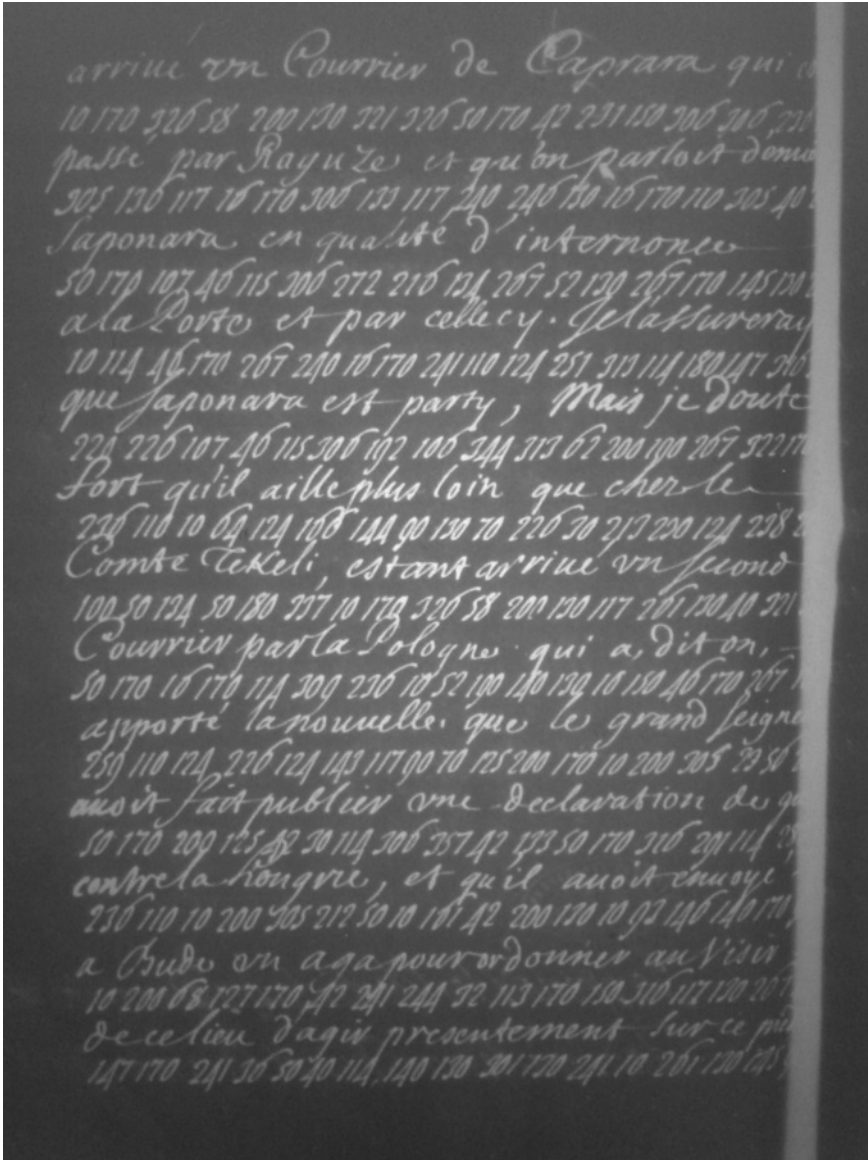 arrivé vn Courrier de Caprara qui
10 170 326 58 200 130 321 326 50 170 42 231 150 306 306
passé par Raguze et qu'on parloit
305 136 117 16 170 306 133 117 240 246 130 16 170 110 305 40
Saponara en qualité d'internonce
50 170 107 46 115 306 272 216 134 267 52 139 267 170 145 130
a la Porte et par cellecy. Je l'assureray
10 114 46 170 267 240 16 170 241 110 124 251 313 114 180 147
que Saponara est party, Mais je doute
224 226 107 46 115 306 192 106 344 313 62 200 190 267 322
fort qu'il aille plus loin que cher le
236 110 10 64 124 166 144 90 130 70 226 30 213 230 124 238
Comte Tekeli, estant arrivé vn second
100 50 134 50 180 337 10 170 326 58 200 130 117 261 130 40 321
Courrier par la Pologne qui a, dit on,
50 170 16 170 114 309 236 10 52 190 140 139 16 150 46 170 267
apporté la nouvelle que le grand
259 110 124 226 124 143 117 90 70 125 200 170 10 200 305
auoit fait publier vne declaration de
50 170 209 125 42 30 114 306 357 42 133 50 170 316 291 114
contre la hongrie, et qu'il auoit enuoyé
236 110 10 200 305 212 50 10 161 42 200 130 10 92 146 140 170
a Bude vn aga pour ordonner au Visir
10 200 68 127 170 42 241 244 32 113 170 150 316 117 130
de ce lieu d'agir presentement sur ce
147 170 241 36 50 40 114 140 130 301 130 241 10 261 130